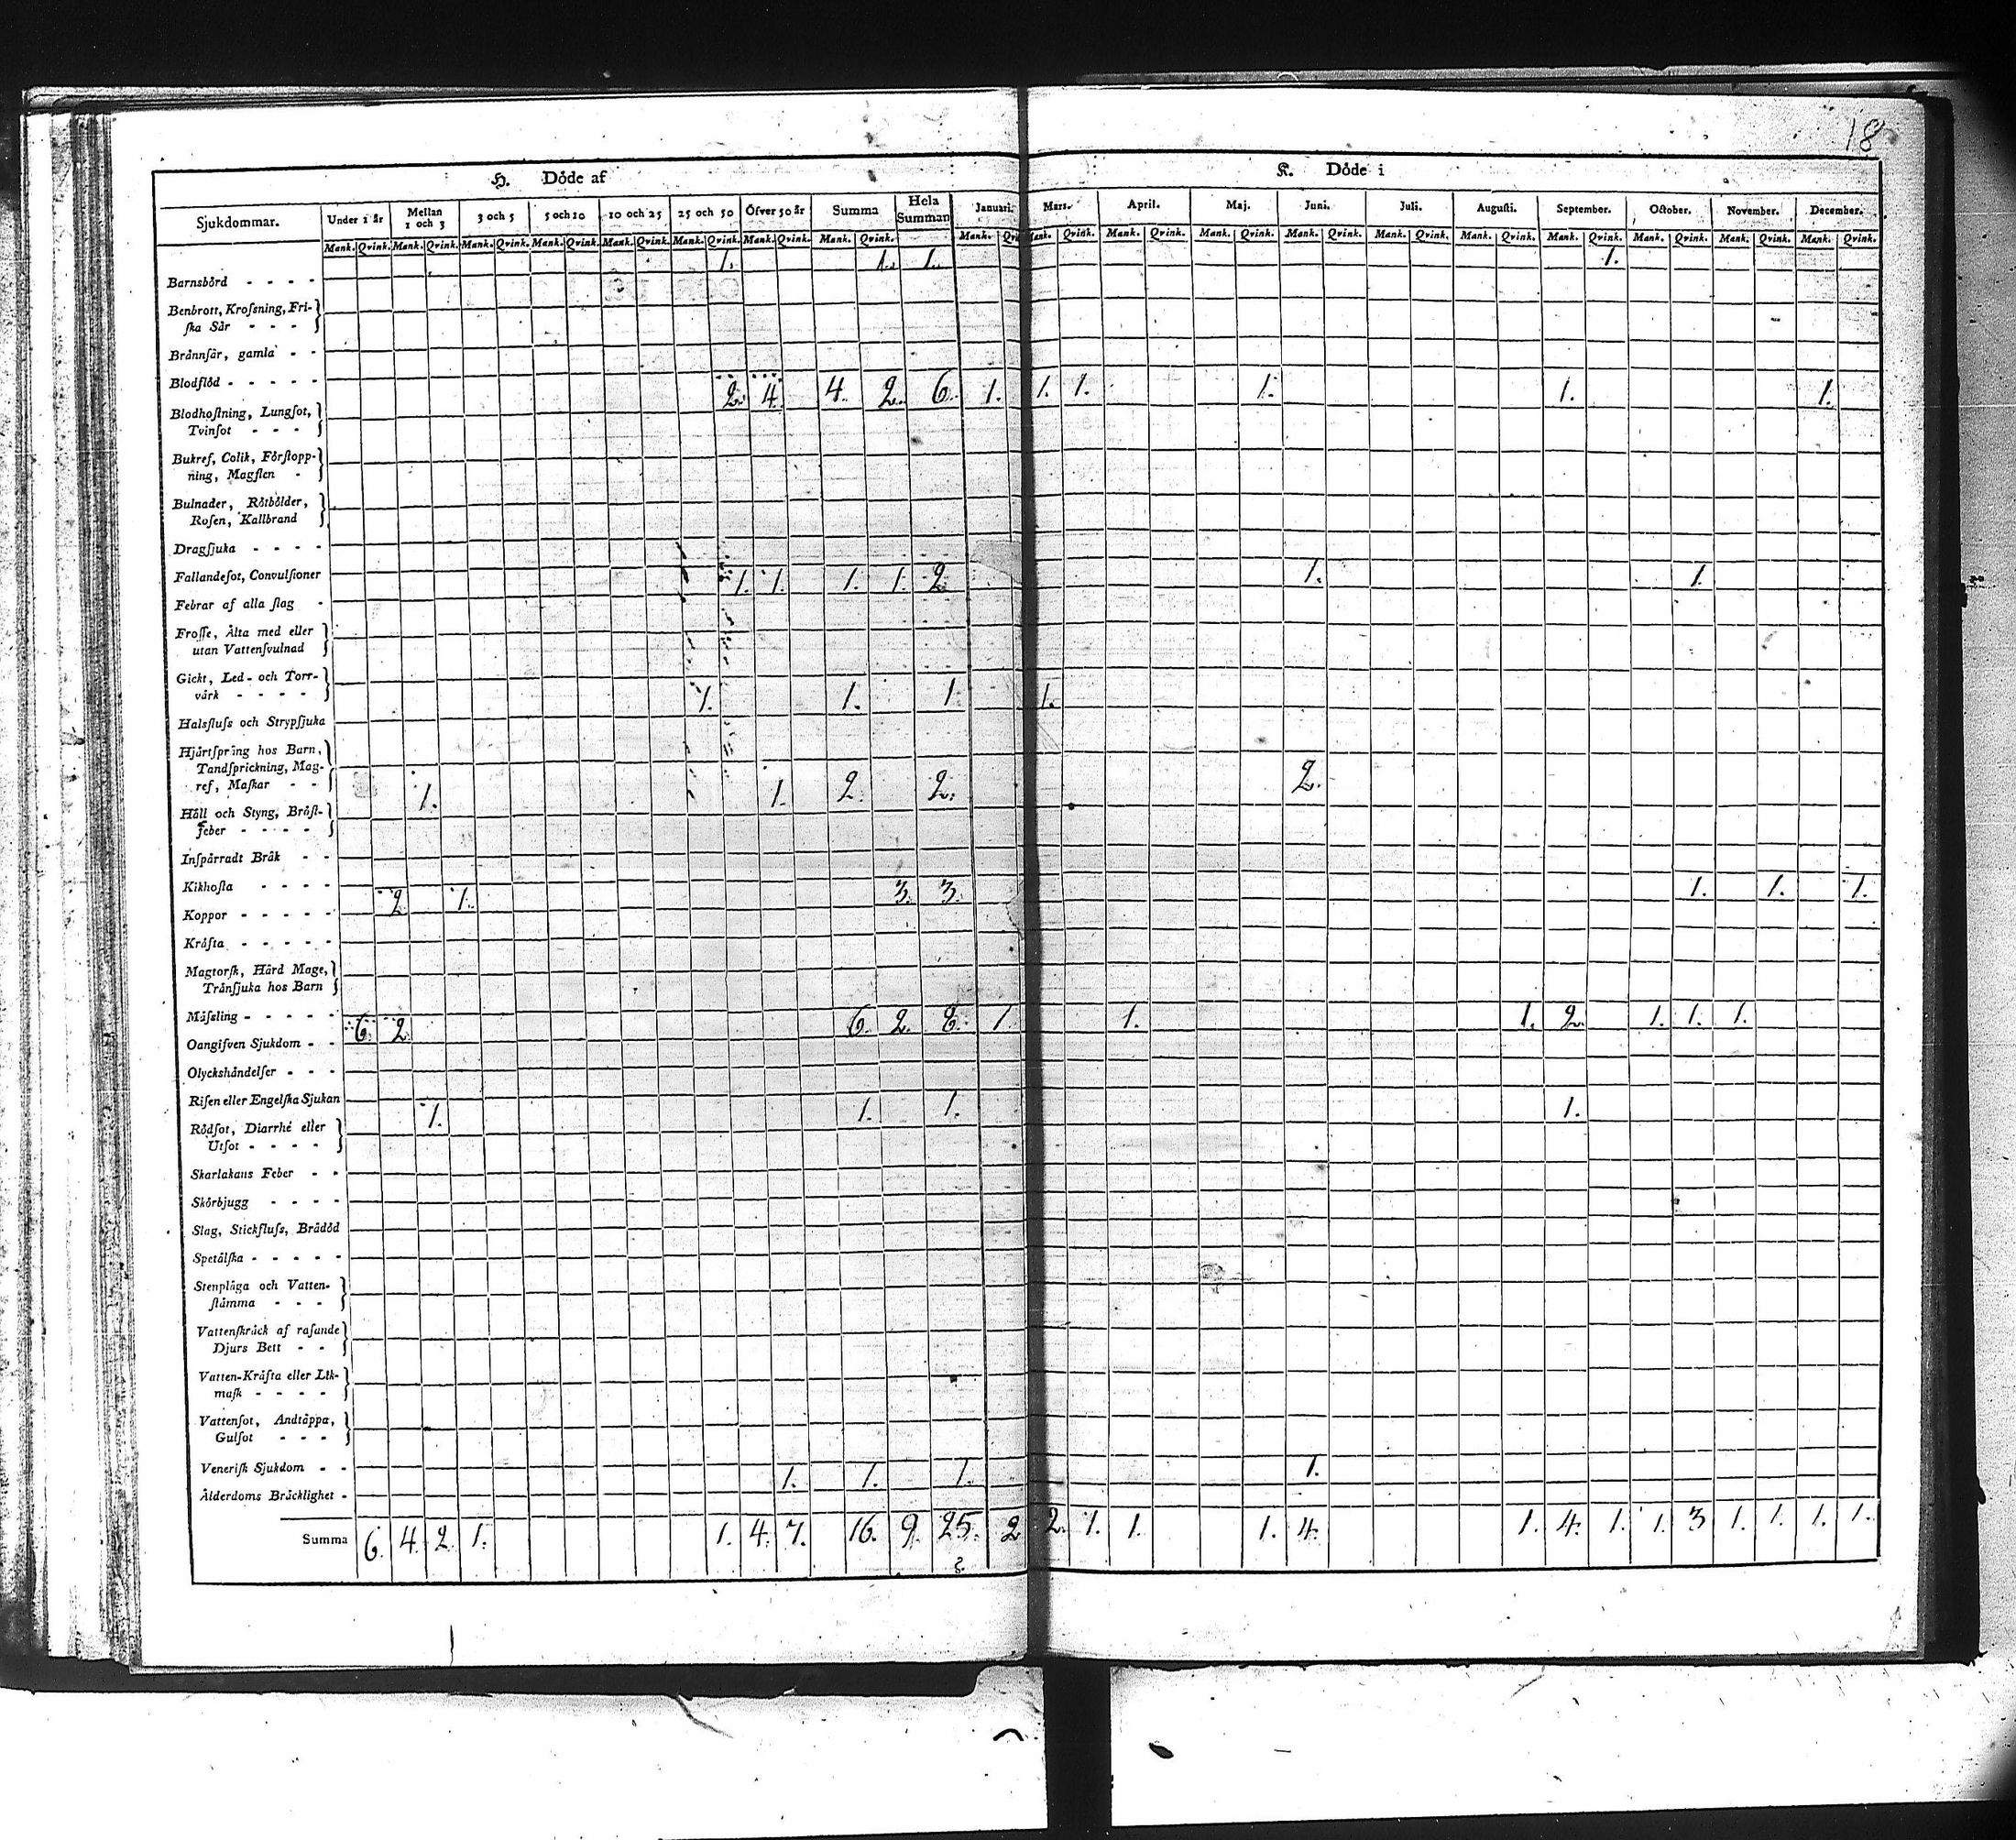 18
H. Döde af
K. Döde i
Sjukdommar. Under 1 år Mellan 1 och 3 3 och 5 5 och 10 10 och 25 25 och 50 Öfver 50 år Summa Hela Summan Januari. Mars. April. Maj. Juni. Juli. Augusti. September. October. November. December.
Mank. Qvink. Mank. Qvink. Mank. Qvink. Mank. Qvink. Mank. Qvink. Mank. Qvink. Mank. Qvink. Mank. Qvink. Mank. Mank. Qvink. Mank. Qvink. Mank. Qvink. Mank. Qvink. Mank. Qvink. Mank. Qvink. Mank. Qvink. Mank. Qvink. Mank. Qvink. Mank. Qvink.
1. 1. 1. 1.
Barnsbörd - - - -
Benbrott, Krosning, Fri-
ska Sår - - -
Brännsår, gamla - -
Blodflöd - - - - -
2. 4. 4. 2. 6. 1. 1. 1. 1. 1. 1.
Blodhostning, Lungsot,
Tvinsot - - -
Bukref, Colik, Förstopp-
ning, Magsten -
Bulnader, Rötbölder,
Rosen, Kallbrand
Dragsjuka - - - -
Fallandesot, Convulsioner
1. 1. 1. 1. 2. 1. 1.
Febrar af alla slag -
Frosse, Älta med eller
utan Vattensvulnad
Gickt, Led- och Torr-
värk - - - -
1. 1. 1. 1.
Halsfluss och Strypsjuka
Hjärtspräng hos Barn,
Tandsprickning, Mag-
ref, Maskar - -
1. 1. 2. 2. 2.
Håll och Styng, Bröst-
feber - - - -
Inspärradt Bråk - -
Kikhosta - - - -
2. 1. 3. 3. 1. 1. 1.
Koppor - - - - -
Kräfta - - - - -
Magtorsk, Hård Mage,
Trånsjuka hos Barn
Mässling - - - - -
6. 2. 6. 2. 8. 1. 1. 1. 2. 1. 1. 1.
Oangifven Sjukdom - -
Olyckshändelser - - -
Risen eller Engelska Sjukan
1. 1. 1. 1.
Rödsot, Diarrhé eller
Utsot - - - -
Skarlakans Feber - -
Skörbjugg - - - -
Slag, Stickfluss, Brådöd
Spetälska - - - - -
Stenplåga och Vatten-
stämma - - -
Vattenskräck af rasande
Djurs Bett - -
Vatten-Kräfta eller Lik-
mask - - - -
Vattensot, Andtäppa,
Gulsot - - -
Venerisk Sjukdom - -
1. 1. 1. 1.
Ålderdoms Bräcklighet -
Summa 6. 4. 2. 1. 1. 4. 7. 16. 9. 25. 2 2. 1. 1. 1. 4. 1. 4. 1. 1. 3 1. 1. 1. 1.